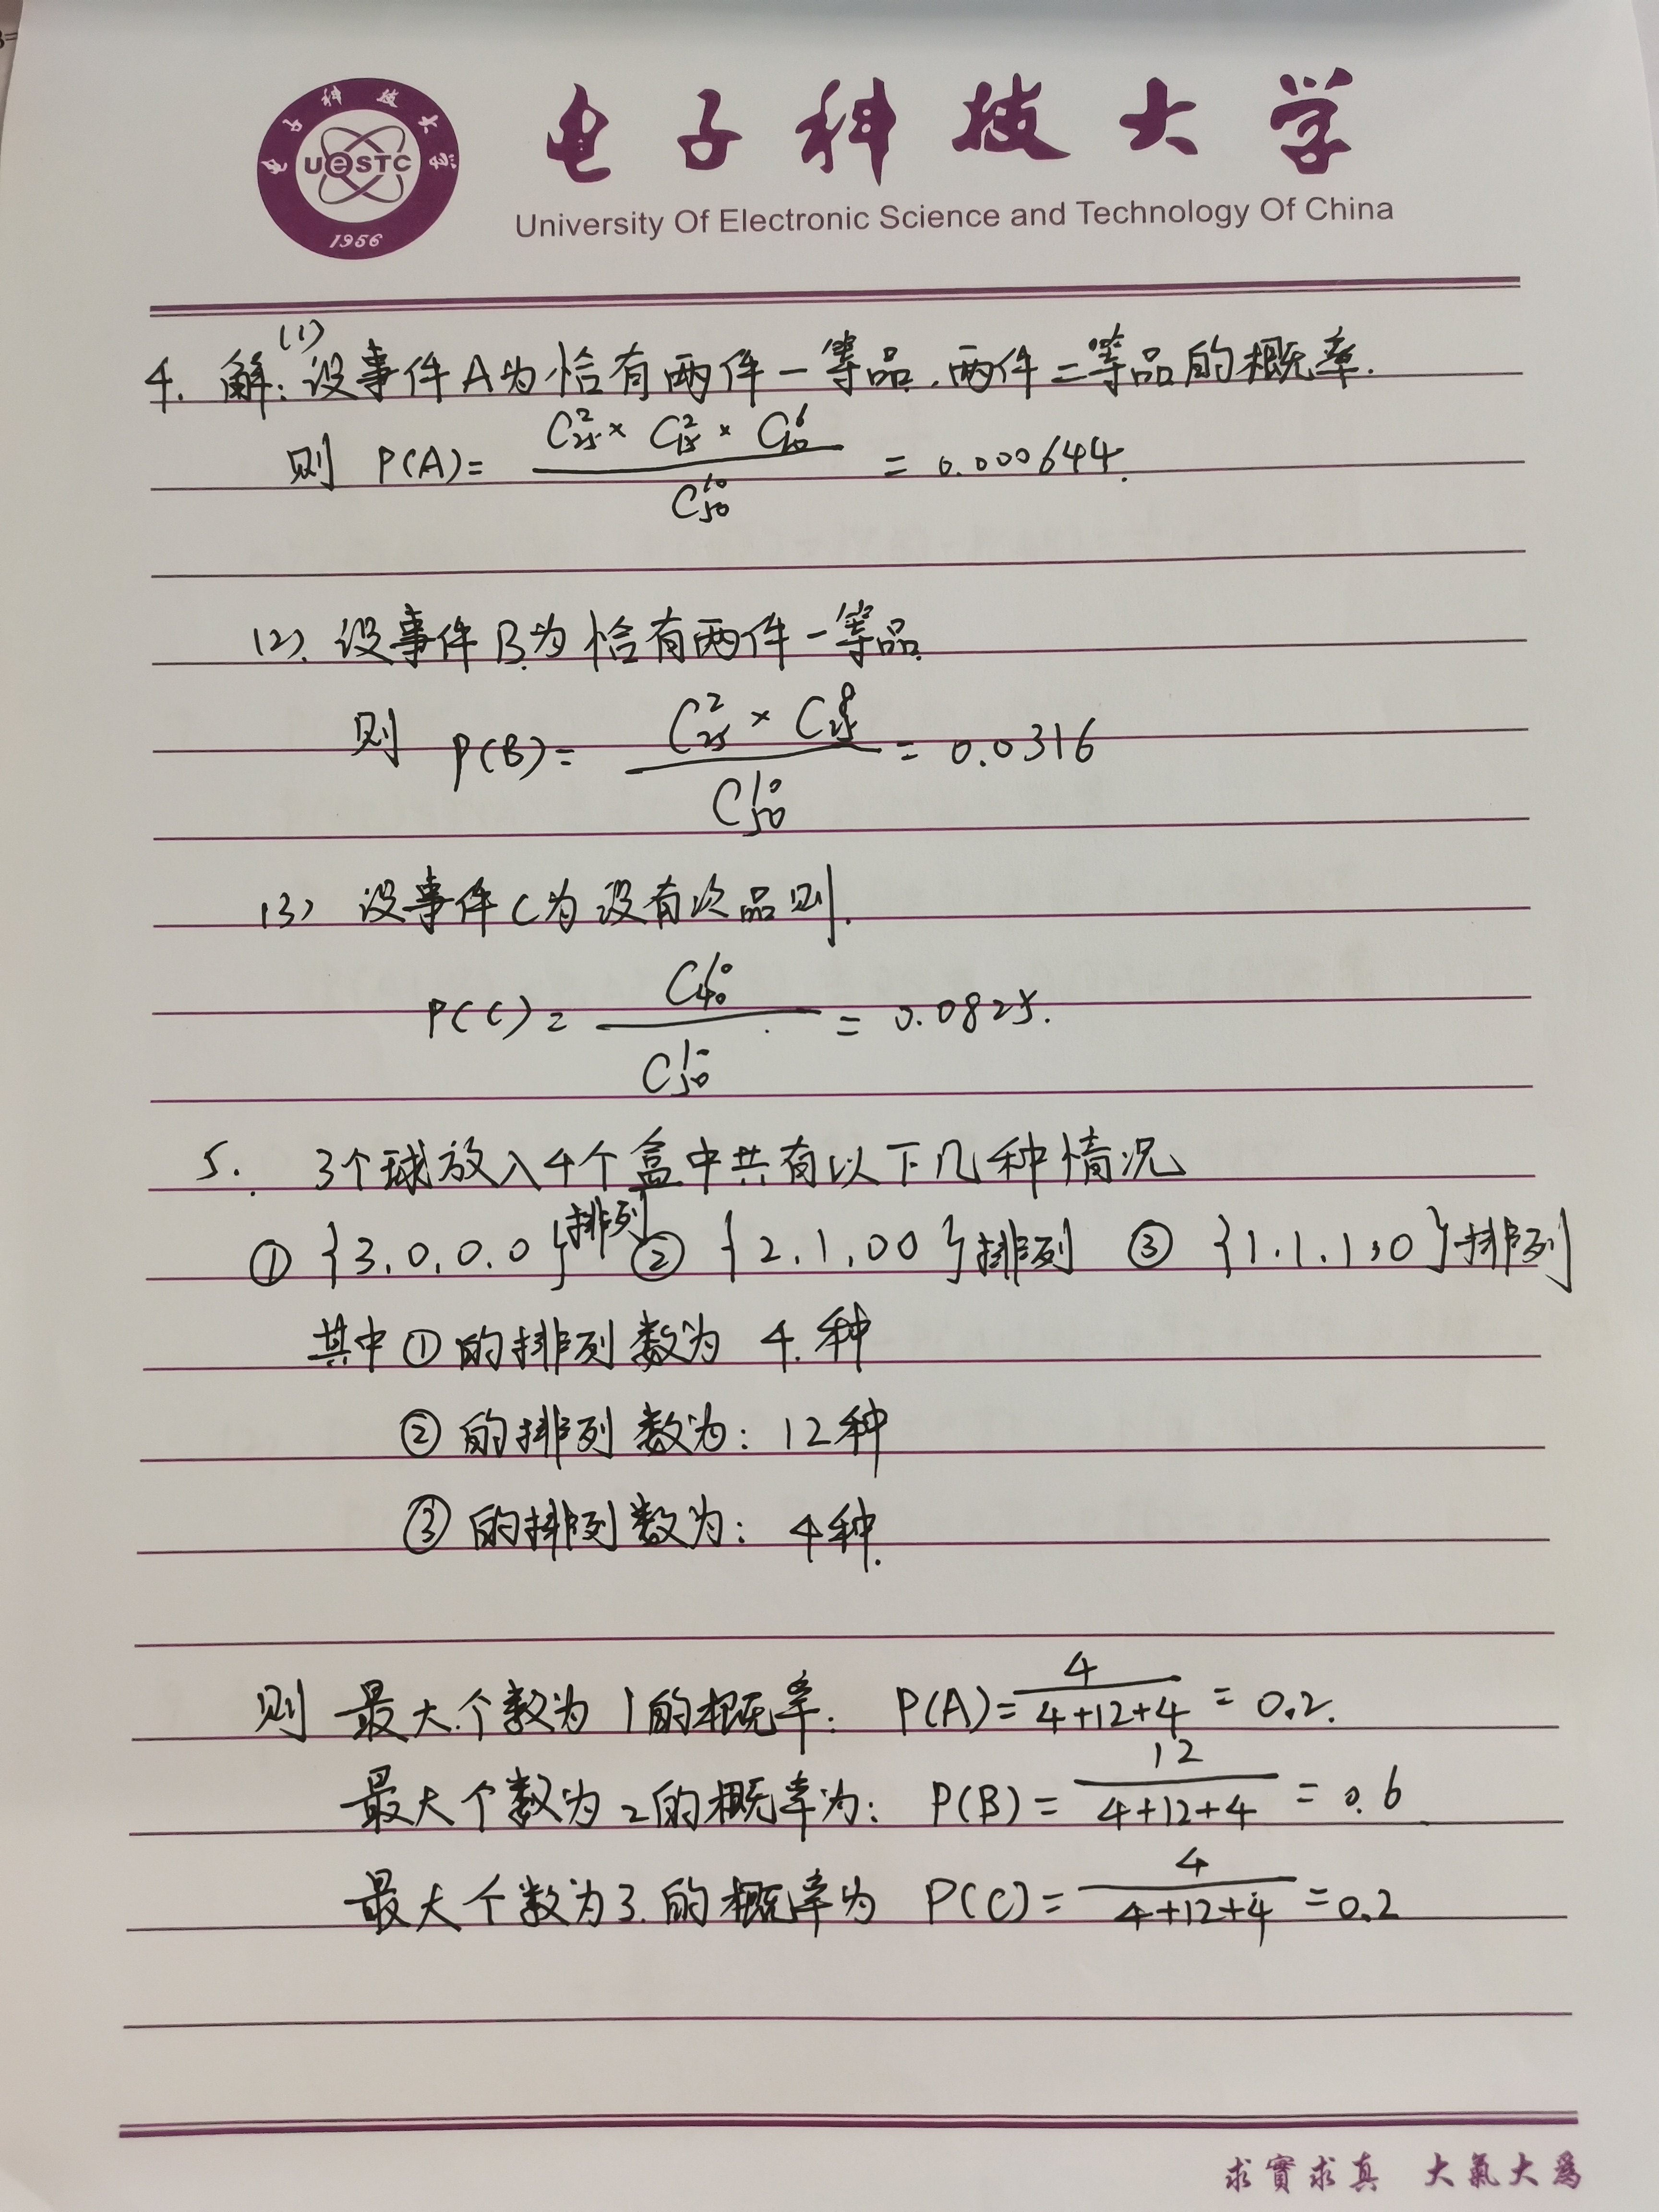 电子科技大学
UESTC
1956
电子科技大学
University Of Electronic Science and Technology Of China
4. 解: (1) 设事件A为恰有两件一等品.两件二等品的概率.
则 P(A)= \frac{C_{25}^{2} × C_{15}^{2} × C_{10}^{6}}{C_{50}^{10}} = 0.000644.
(2). 设事件B为恰有两件一等品.
则 P(B)= \frac{C_{25}^{2} × C_{25}^{8}}{C_{50}^{10}} = 0.0316
(3) 设事件C为没有次品则.
P(C)= \frac{C_{40}^{10}}{C_{50}^{10}} = 0.0825.
5. 3个球放入4个盒中共有以下几种情况
① {3.0.0.0}排列 ② {2.1.00}排列 ③ {1.1.1,0}排列
其中①的排列数为 4.种
②的排列数为: 12种
③的排列数为: 4种.
则 最大个数为1的概率: P(A)= \frac{4}{4+12+4} = 0.2.
最大个数为2的概率为: P(B)= \frac{12}{4+12+4} = 0.6
最大个数为3.的概率为 P(C)= \frac{4}{4+12+4} = 0.2
求實求真 大氣大為